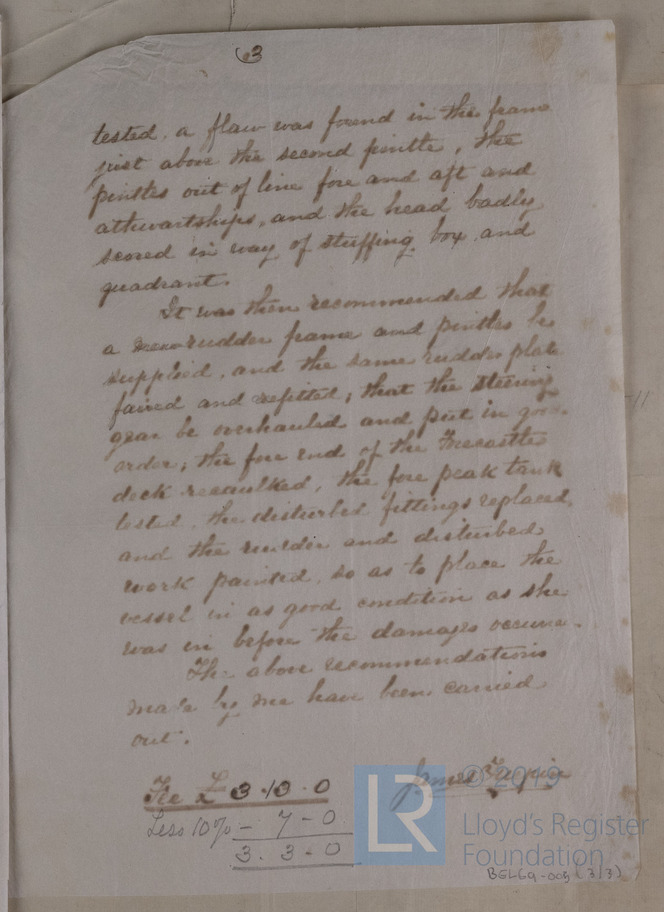 3
tested, a flaw was found in the frame
just above the second pintle, the
pintles out of line fore and aft and
athwartships, and the head badly
scored in way of stuffing box and
quadrant.
It was then recommended that
a new rudder frame and pintles be
supplied, and the same rudder plate
faired and refitted; that the steering
gear be overhauled and put in good
order; the fore end of the Forecastle
deck recaulked, the fore peak tank
tested, the disturbed fittings replaced,
and the rudder and disturbed
work painted, so as to place the
vessel in as good condition as she
was in before the damages occurre
The above recommendations
made by me have been carried
out.
Fee £ 3.10.0
James
Less 10% - 7-0
3.3-0
© 2019
LR
Lloyd's Register
Foundation
BGL69-009 (3/3)